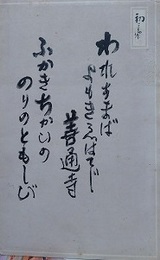 われすまば
よもきえはてじ
善通寺
ふかきちかひの
のりのともしび